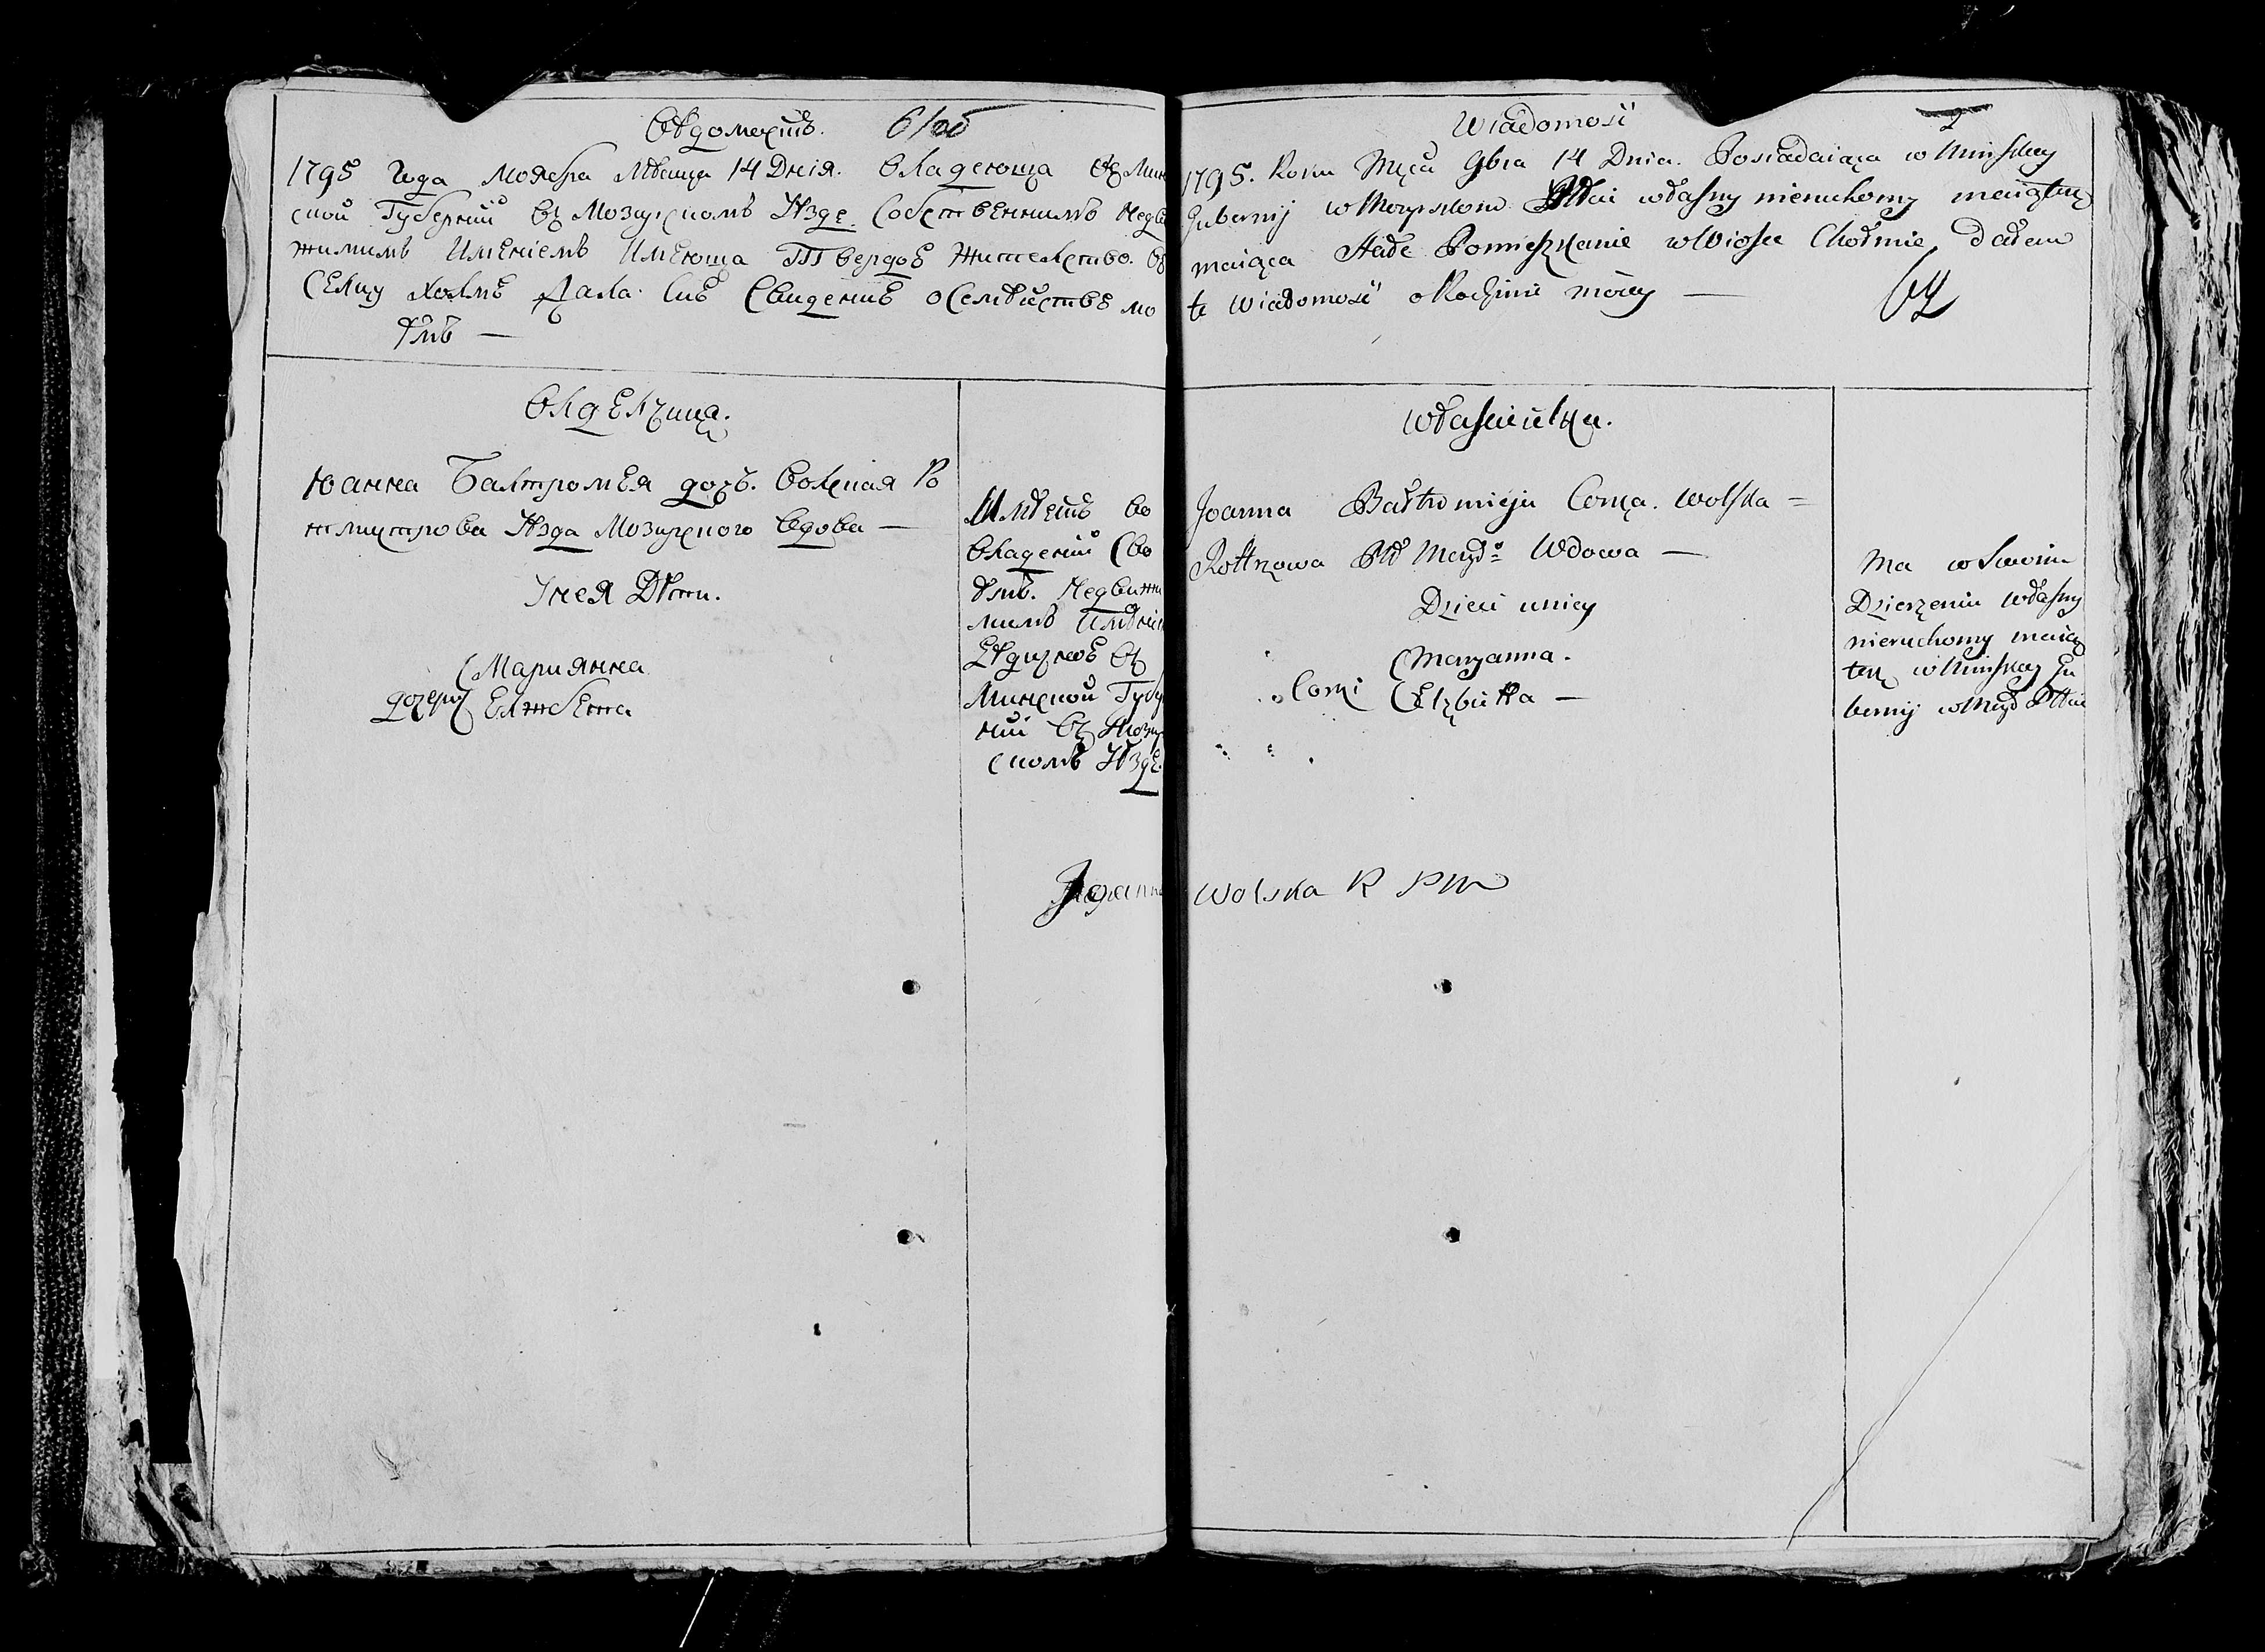 Вѣдомость. 6/об
1795 Года Моября Мѣсяца 14 Дніа. владеюща въ Мин
ской Губерній въ Мозирскомъ Уѣзде. Собственнимъ Недви
жимимъ Именіемъ Имеюща Твердое жителство. въ
Селцу Холмѣ Дала. Сие Сведение о Семействе мо
емъ —
Владелчица.
Юанна Балтромея дочь. Волская Ро
тмистрова Уѣзда Мозирского вдова —
У нея Дѣти.
Марианна
дочери Елжбета
Имѣетъ во
владений Сво
емъ. Недвижи
мимъ Имѣни
въ
Минской Губер
ний въ Мози
скомъ Уѣзде.
Joanna
Wiadomość 2
1795. Roku Mcą 9bra 14 Dnia. Posiadaiąca w Minskey
Gubernij w Mozyrskom Pttcie własny nieruchomy maiątek
maiąca Stałe Pomieszkanie w Wiosce Chołmie, dałem
te Wiadomość o Rodzinie moiey — 62
Właścicielka.
Joanna Bałtromieja Corka. Wolska =
Rottmzowa Pttu Mozyo Wdowa —
Dzieci u niey
Maryanna.
Corki Elzbietta —
Ma w Swoim
Dzierzeniu własny
nieruchomy maią
tek w Minskey Gu
bernij w Mozyr Pttcie
Wolska R P M